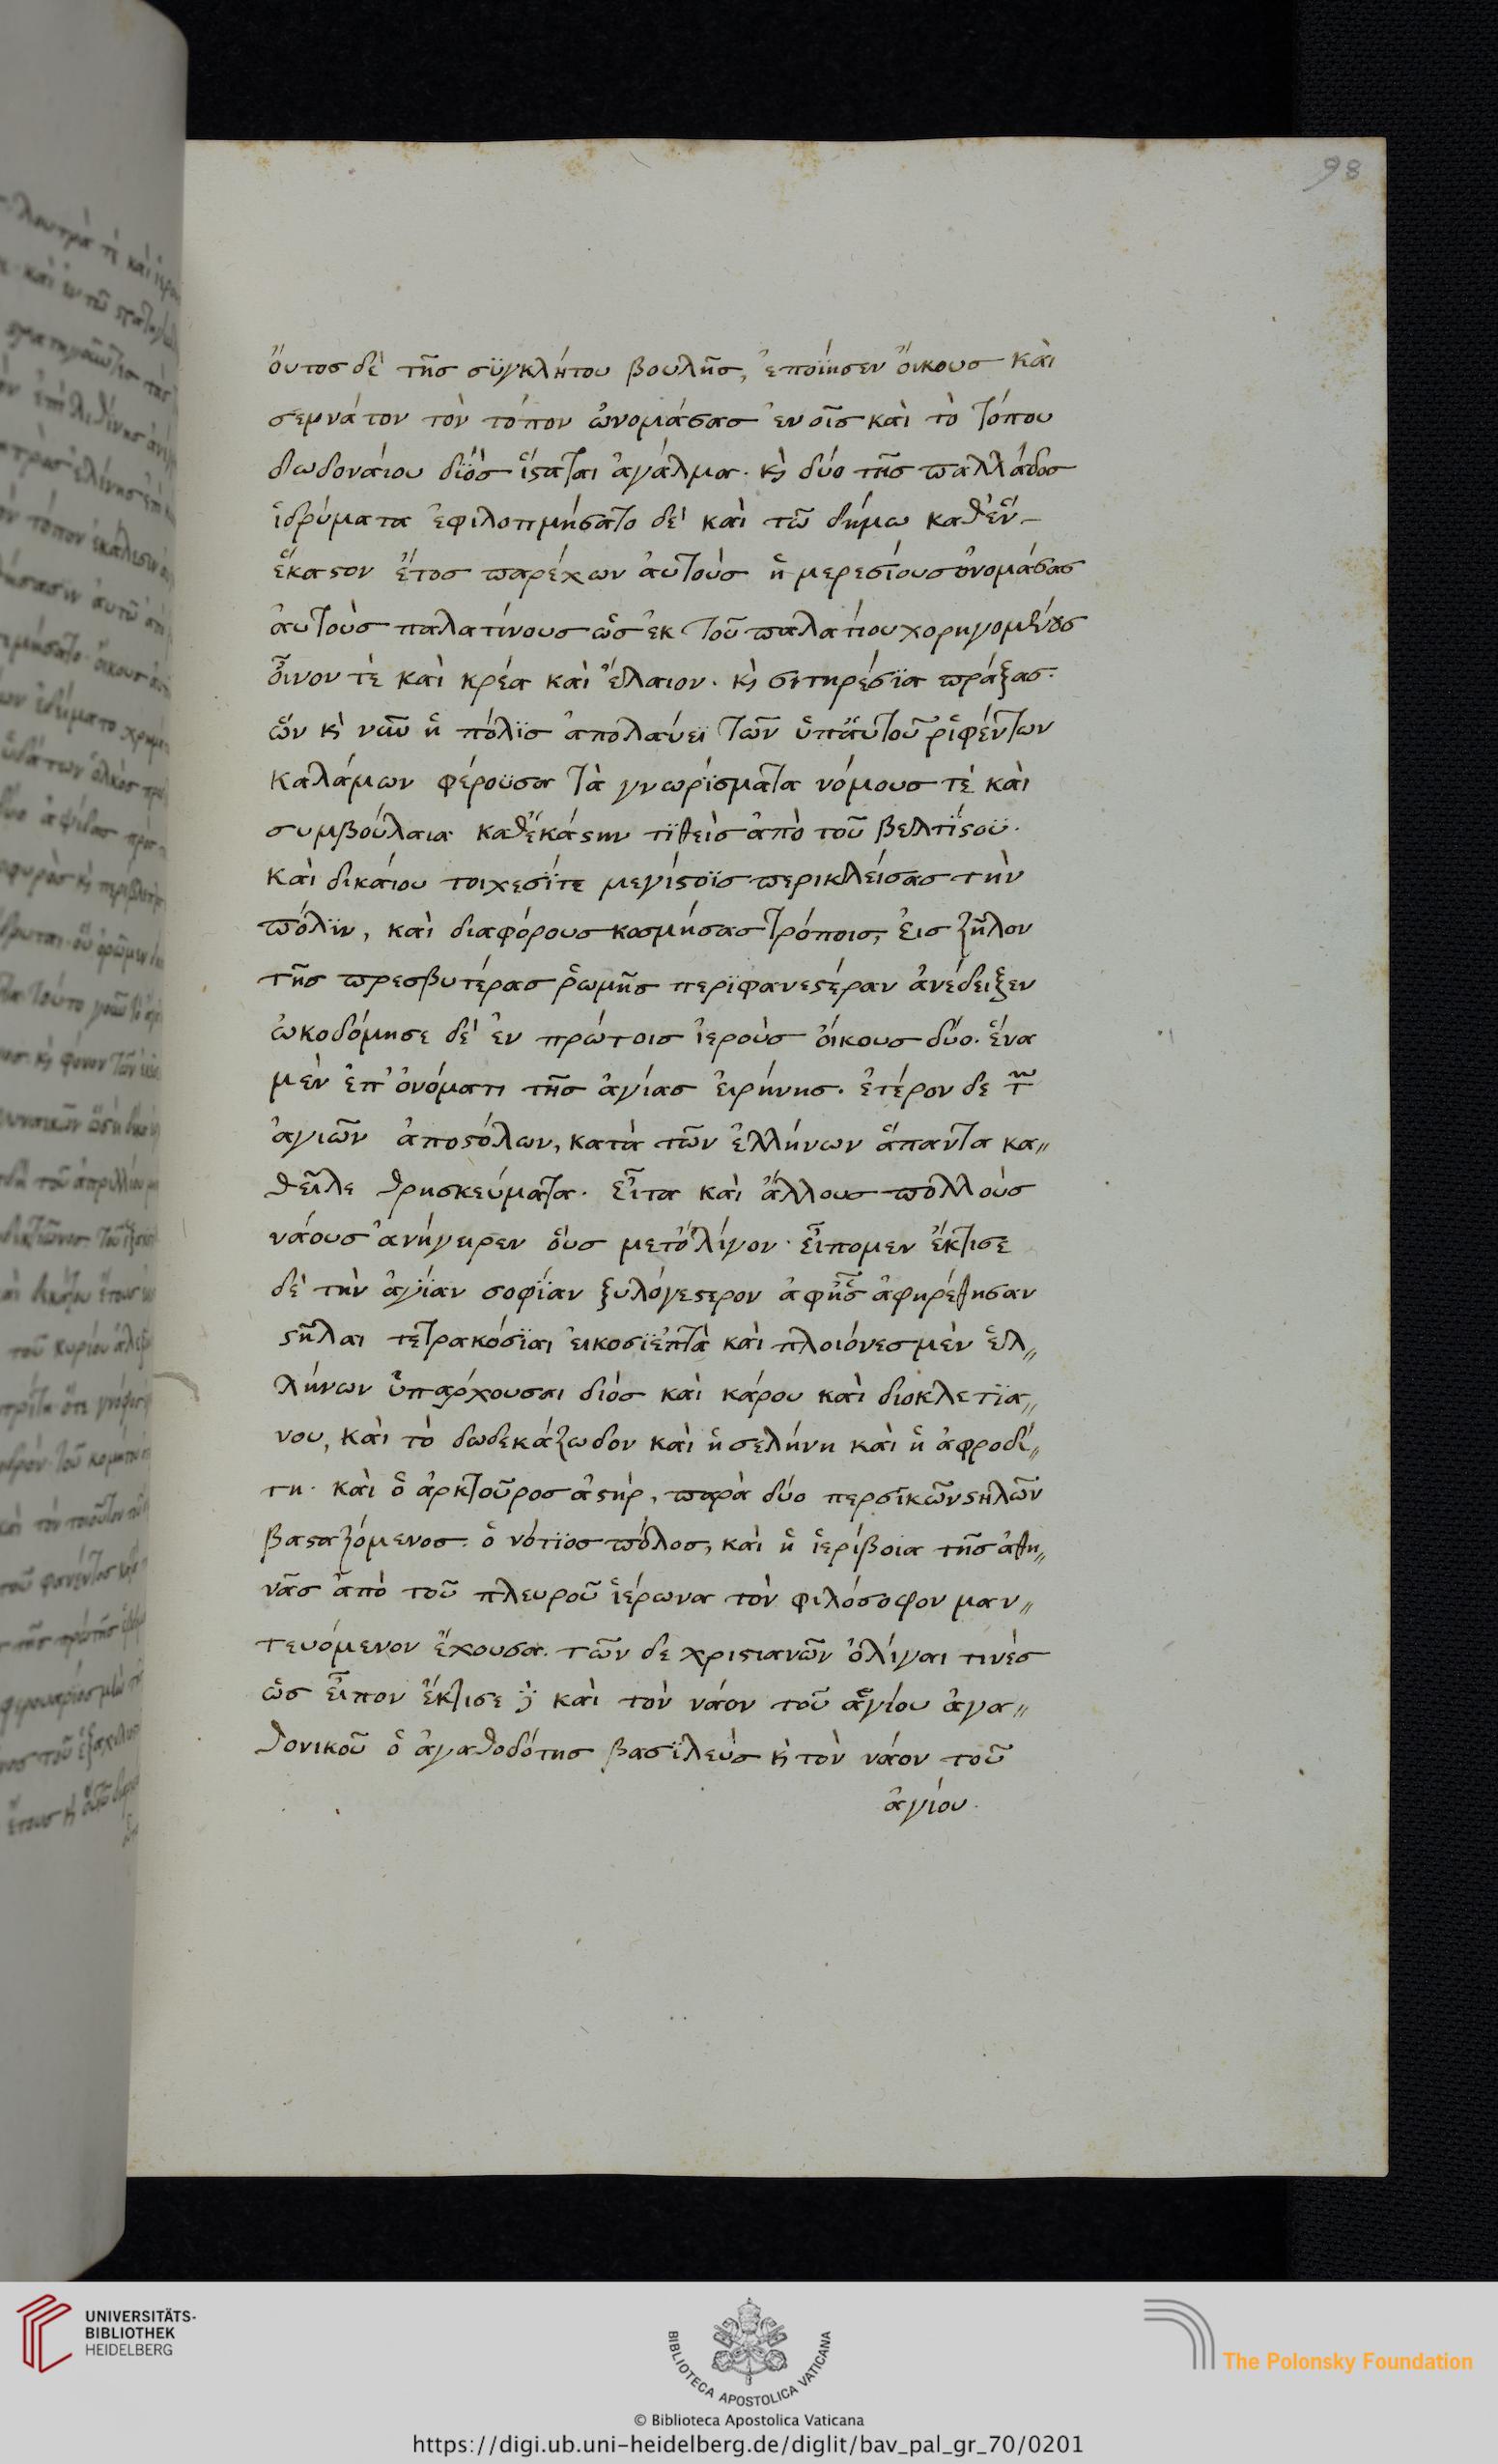 98
ὅυτοσ δὲ τῆσ σϋγκλήτου βουλῆσ, ἐποίησεν ὄικουσ καὶ
σεμνάτον τὸν τόπον ὠνομάσασ ἐν οἷσ καὶ τὸ τόπου
δωδοναίου διὸσ ἵσταται ἀγάλμα. κὶ δύο τῆσ παλλάδοσ
ἱδρύματα ἐφιλοτιμήσατο δὲ καὶ τῶ δήμω καθἓν-
ἕκαστον ἔτοσ παρέχων ἀυτοὺσ ἡμερεσίουσ ὀνομάσασ
ἀυτοὺσ παλατίνουσ ὡσ ἐκ τοῦ παλατίου χορηγομένουσ
οἶνον τὲ καὶ κρέα καὶ ἔλαιον. κὶ σιτηρέσϊα πράξασ.
ὧν κὶ νῦν ἡ πόλϊσ ἀπολαύεϊ τῶν ὑπἀυτοῦ ῥιφέντων
καλάμων φέροϋσα τὰ γνωρίσματα νόμουσ τὲ καὶ
συμβούλαια καθἑκάστην τϊθεὶσ ἀπὸ τοῦ βελτίστοϋ.
καὶ δικαίου τοιχεσΐτε μεγίστοϊσ περικλείσασ τὴν
πόλϊν, καὶ διαφόρουσ κοσμήσασ τρόποισ, ἐισ ζῆλον
τῆσ πρεσβυτέρασ ῥωμῆσ περϊφανεστέραν ἀνέδειξεν
ὠκοδόμησε δὲ ἐν πρώτοισ ἱεροὺσ ὄικουσ δύο. ἕνα
μὲν ἐπ' ὀνόματι τῆσ ἁγίασ ἐιρήνησ. ἑτέρον δε τῶν
ἁγιῶν ἀποστόλων, κατὰ τῶν ἑλλήνων ἅπαντα κα〃
θεῖλε θρησκεύματα. εἶτα καὶ ἄλλουσ πολλοὺσ
νάουσ ἀνήγειρεν οὓσ μετὀλίγον. εἴπομεν ἔκτισε
δὲ τὴν ἁγϊαν σοφϊαν ξυλόγεστερον ἀφῆσ ἀφηρέθησαν
στῆλαι τετρακόσϊαι ἐικοσϊεπτὰ καὶ πλοιόνεσ μὲν ἑλ〃
λήνων ὑπαρχουσαι διόσ καὶ κάρου καὶ διοκλετϊα〃
νου, καὶ τὸ δωδεκάζωδον καὶ ἡ σελήνη καὶ ἡ ἀφροδί〃
τη. καὶ ὁ ἀρκτοῦροσ ἀστὴρ, παρὰ δύο περσϊκῶν στηλῶν
βασταζόμενοσ. ὁ νότϊοσ πόλοσ, καὶ ἡ ἱερίβοια τῆσ ἀθη〃
νᾶσ ἀπὸ τοῦ πλευροῦ ἱέρωνα τὸν φιλόσοφον μαν〃
τευόμενον ἔχουσα. τῶν δε χριστιανῶν ὀλίγαι τινὲσ
ὡσ εἶπον ἔκτισε καὶ τὸν νάον τοῦ ἁγίου ἀγα〃
θονικοῦ ὁ ἀγαθοδότησ βασϊλεὺσ κὶ τὸν νάον τοῦ
ἁγίου.
UNIVERSITÄTS-
BIBLIOTHEK
HEIDELBERG
BIBLIOTECA APOSTOLICA VATICANA
© Biblioteca Apostolica Vaticana
The Polonsky Foundation
https://digi.ub.uni-heidelberg.de/diglit/bav_pal_gr_70/0201